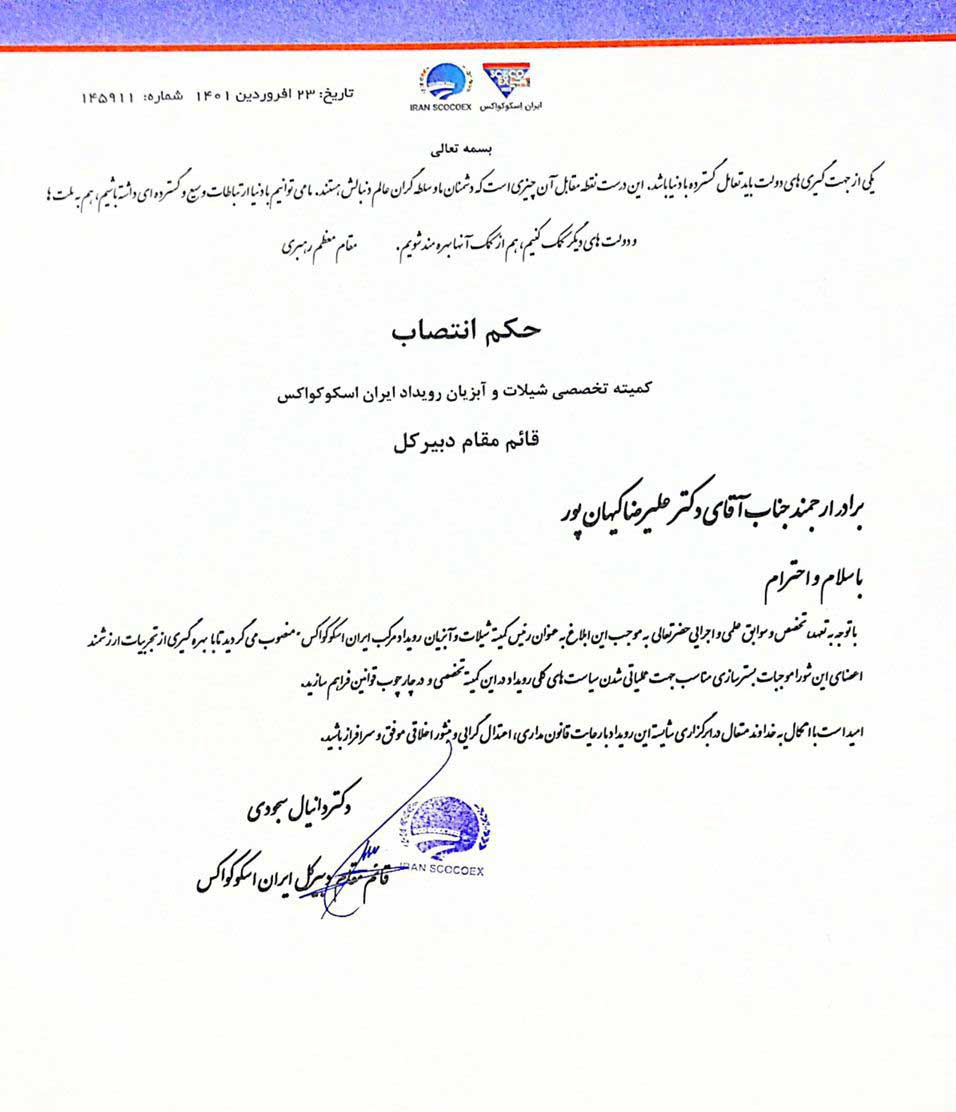 تاریخ: ۲۳ افروردین ۱۴۰۱ شماره: ۱۴۵۹۱۱
SCOCOEX
IRAN SCOCOEX ایران اسکوکواکس
بسمه تعالی
یکی از جهت گیری های دولت باید تعامل گسترده با دنیا باشد. این درست نقطه مقابل آن چیزی است که دشمنان ما و سلطه گران عالم دنبالش هستند. ما می توانیم با دنیا ارتباطات وسیع و گسترده ای داشته باشیم، هم به ملت ها
و دولت های دیگر کمک کنیم، هم از کمک آنها بهره مند شویم. مقام معظم رهبری
حکم انتصاب
کمیته تخصصی شیلات و آبزیان رویداد ایران اسکوکواکس
قائم مقام دبیرکل
برادر ارجمند جناب آقای دکتر علیرضا کیهان پور
با سلام و احترام
با توجه به تعهد، تخصص و سوابق علمی و اجرایی حضرتعالی به موجب این ابلاغ به عنوان رئیس کمیته شیلات و آبزیان رویداد مرکب ایران اسکوکواکس" منصوب می گردید تا با بهره گیری از تجربیات ارزشمند
اعضای این شورا موجبات بسترسازی مناسب جهت عملیاتی شدن سیاست های کلی رویداد در این کمیته تخصصی و در چارچوب قوانین فراهم سازید.
امید است با اتکال به خداوند متعال در برگزاری شایسته این رویداد با رعایت قانون مداری، اعتدال گرایی و منشور اخلاقی موفق و سرافراز باشید.
دکتر دانیال سجودی
قائم مقام دبیرکل ایران اسکوکواکس
IRAN SCOCOEX